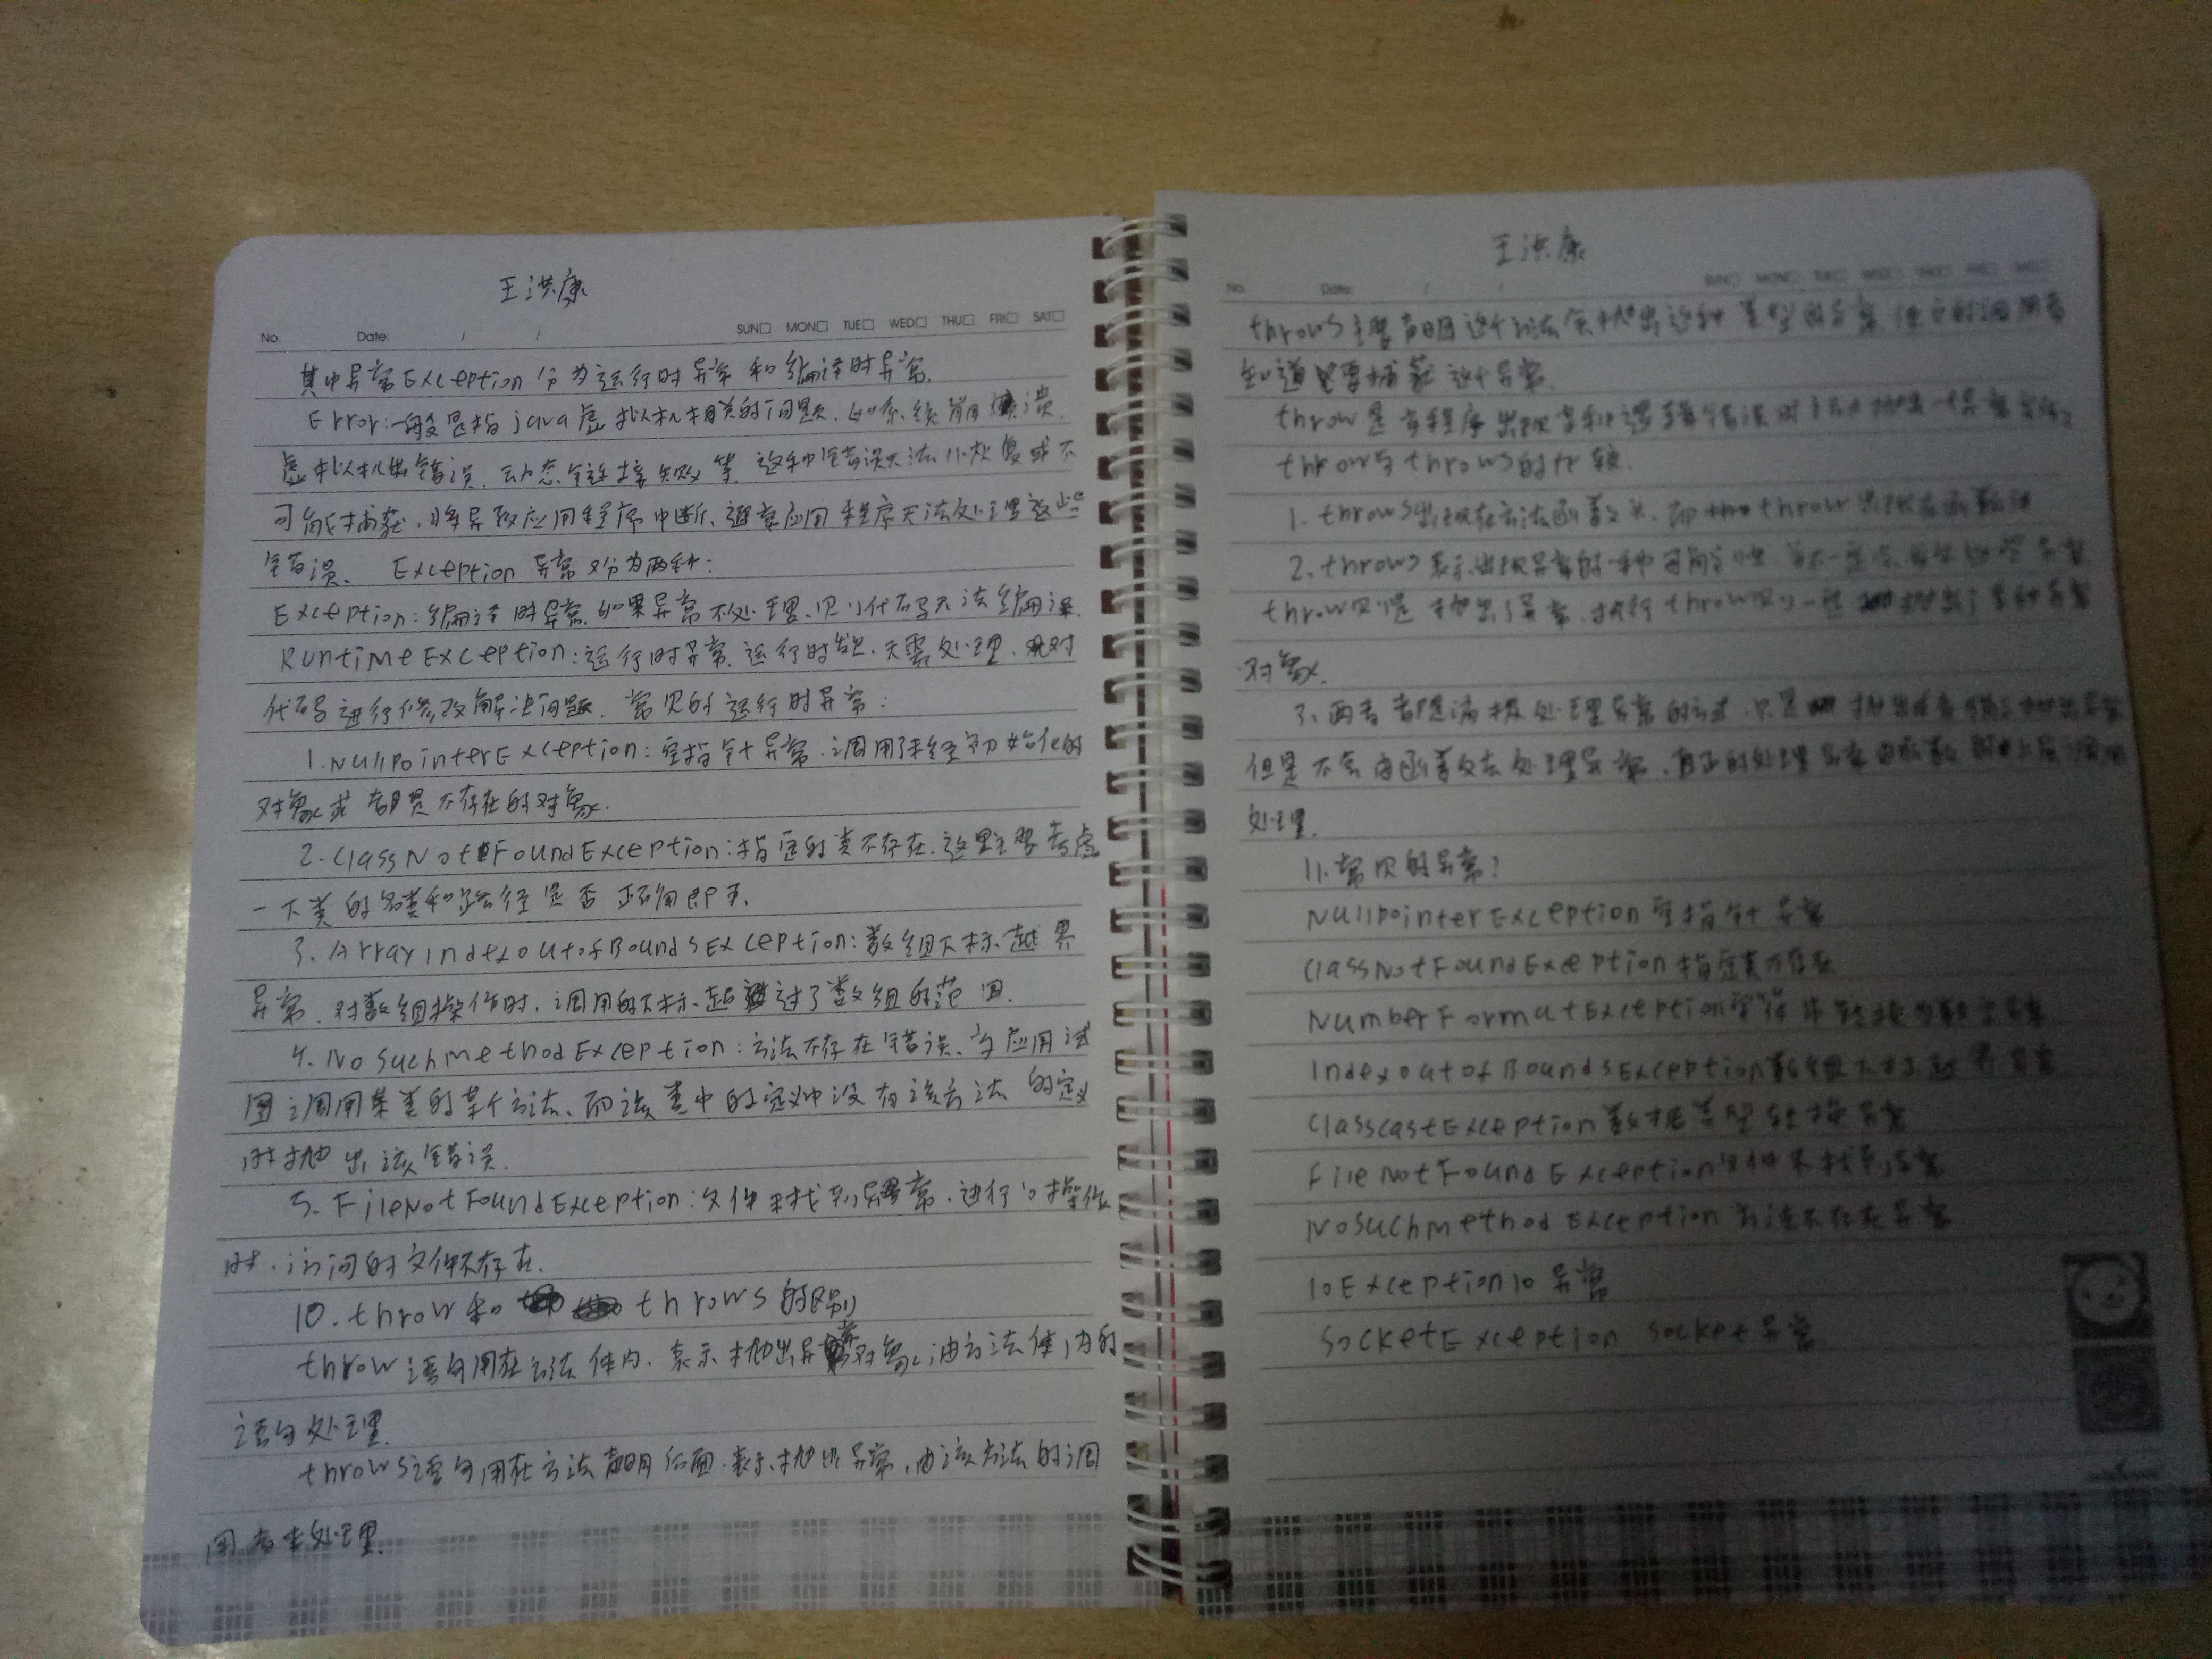 王洪康
No. Date: / / SUN□ MON□ TUE□ WED□ THU□ FRI□ SAT□
其中异常Exception分为运行时异常和编译时异常.
Error:一般是指java虚拟机相关的问题.如系统崩溃.
虚拟机出错误.动态链接失败等.这种错误无法恢复或不
可能捕获,将导致应用程序中断.通常应用程序无法处理这些
错误. Exception异常又分为两种:
Exception:编译时异常.如果异常不处理.则代码无法编译.
RuntimeException:运行时异常.运行时发.无需处理.对
代码进行修改解决问题.常见的运行时异常:
1.NullpointerException:空指针异常.调用了未经初始化的
对象或者是不存在的对象.
2.ClassNotFoundException:指定的类不存在.这里主要考虑
一下类的名类和路径是否正确即可.
3.ArrayIndexOutofBoundsException:数组下标越界
异常.对数组操作时,调用的下标超过了数组的范围.
4.NoSuchmethodException:方法不存在错误.当应用试
图调用某类的某个方法.而该类中的定义中没有该方法的定义
时抛出该错误.
5.FileNotFoundException:文件未找到异常.进行io操作
时.访问的文件不存在.
10.throw和throws的区别
throw语句用在方法体内.表示抛出异常对象,由方法体内的
语句处理.
throws语句用在方法声明后面.表示抛出异常,由该方法的调
用者来处理.
王洪康
No. Date: / / SUN□ MON□ TUE□ WED□ THU□ FRI□
throws主要声明这个方法会抛出这种类型的异常.使它的调用者
知道要捕获这个异常.
throw是当程序出现某种逻辑错误时
throw与throws的比较.
1.throws出现在方法函数头.而throw出现在函数体
2.throws表示出现异常的一种可能性.并不一定会发生这些异常
throw则是抛出了异常.执行throw则一定抛出了某种异常
对象.
3.两者都是消极处理异常的方式.只是抛出或者可能抛出异常
但是不会由函数去处理异常.真正的处理异常由函数的上层调用
处理.
11.常见的异常?
NullpointerException空指针异常
ClassNotFoundException指定类不存在
NumberFormatException字符串转换为数字异常
IndexoutofBoundsException数组下标越界异常
ClasscastException数据类型转换异常
FileNotFoundException文件未找到异常
NoSuchmethodException方法不存在异常
IoExceptionIo异常
SocketException socket异常.